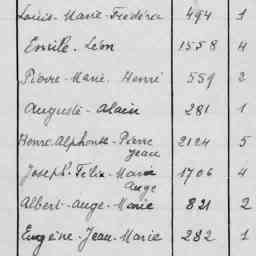 Louis-Marie-Frédéric 494 1
Emile-Léon 1558 4
Pierre-Marie-Henri 559 2
Auguste-Alain 281 1
Henri-Alphonse-Pierre 2124 5
Jean
Joseph-Félix-Marie 1706 4
Ange
Albert-Ange-Marie 821 2
Eugène-Jean-Marie 282 1